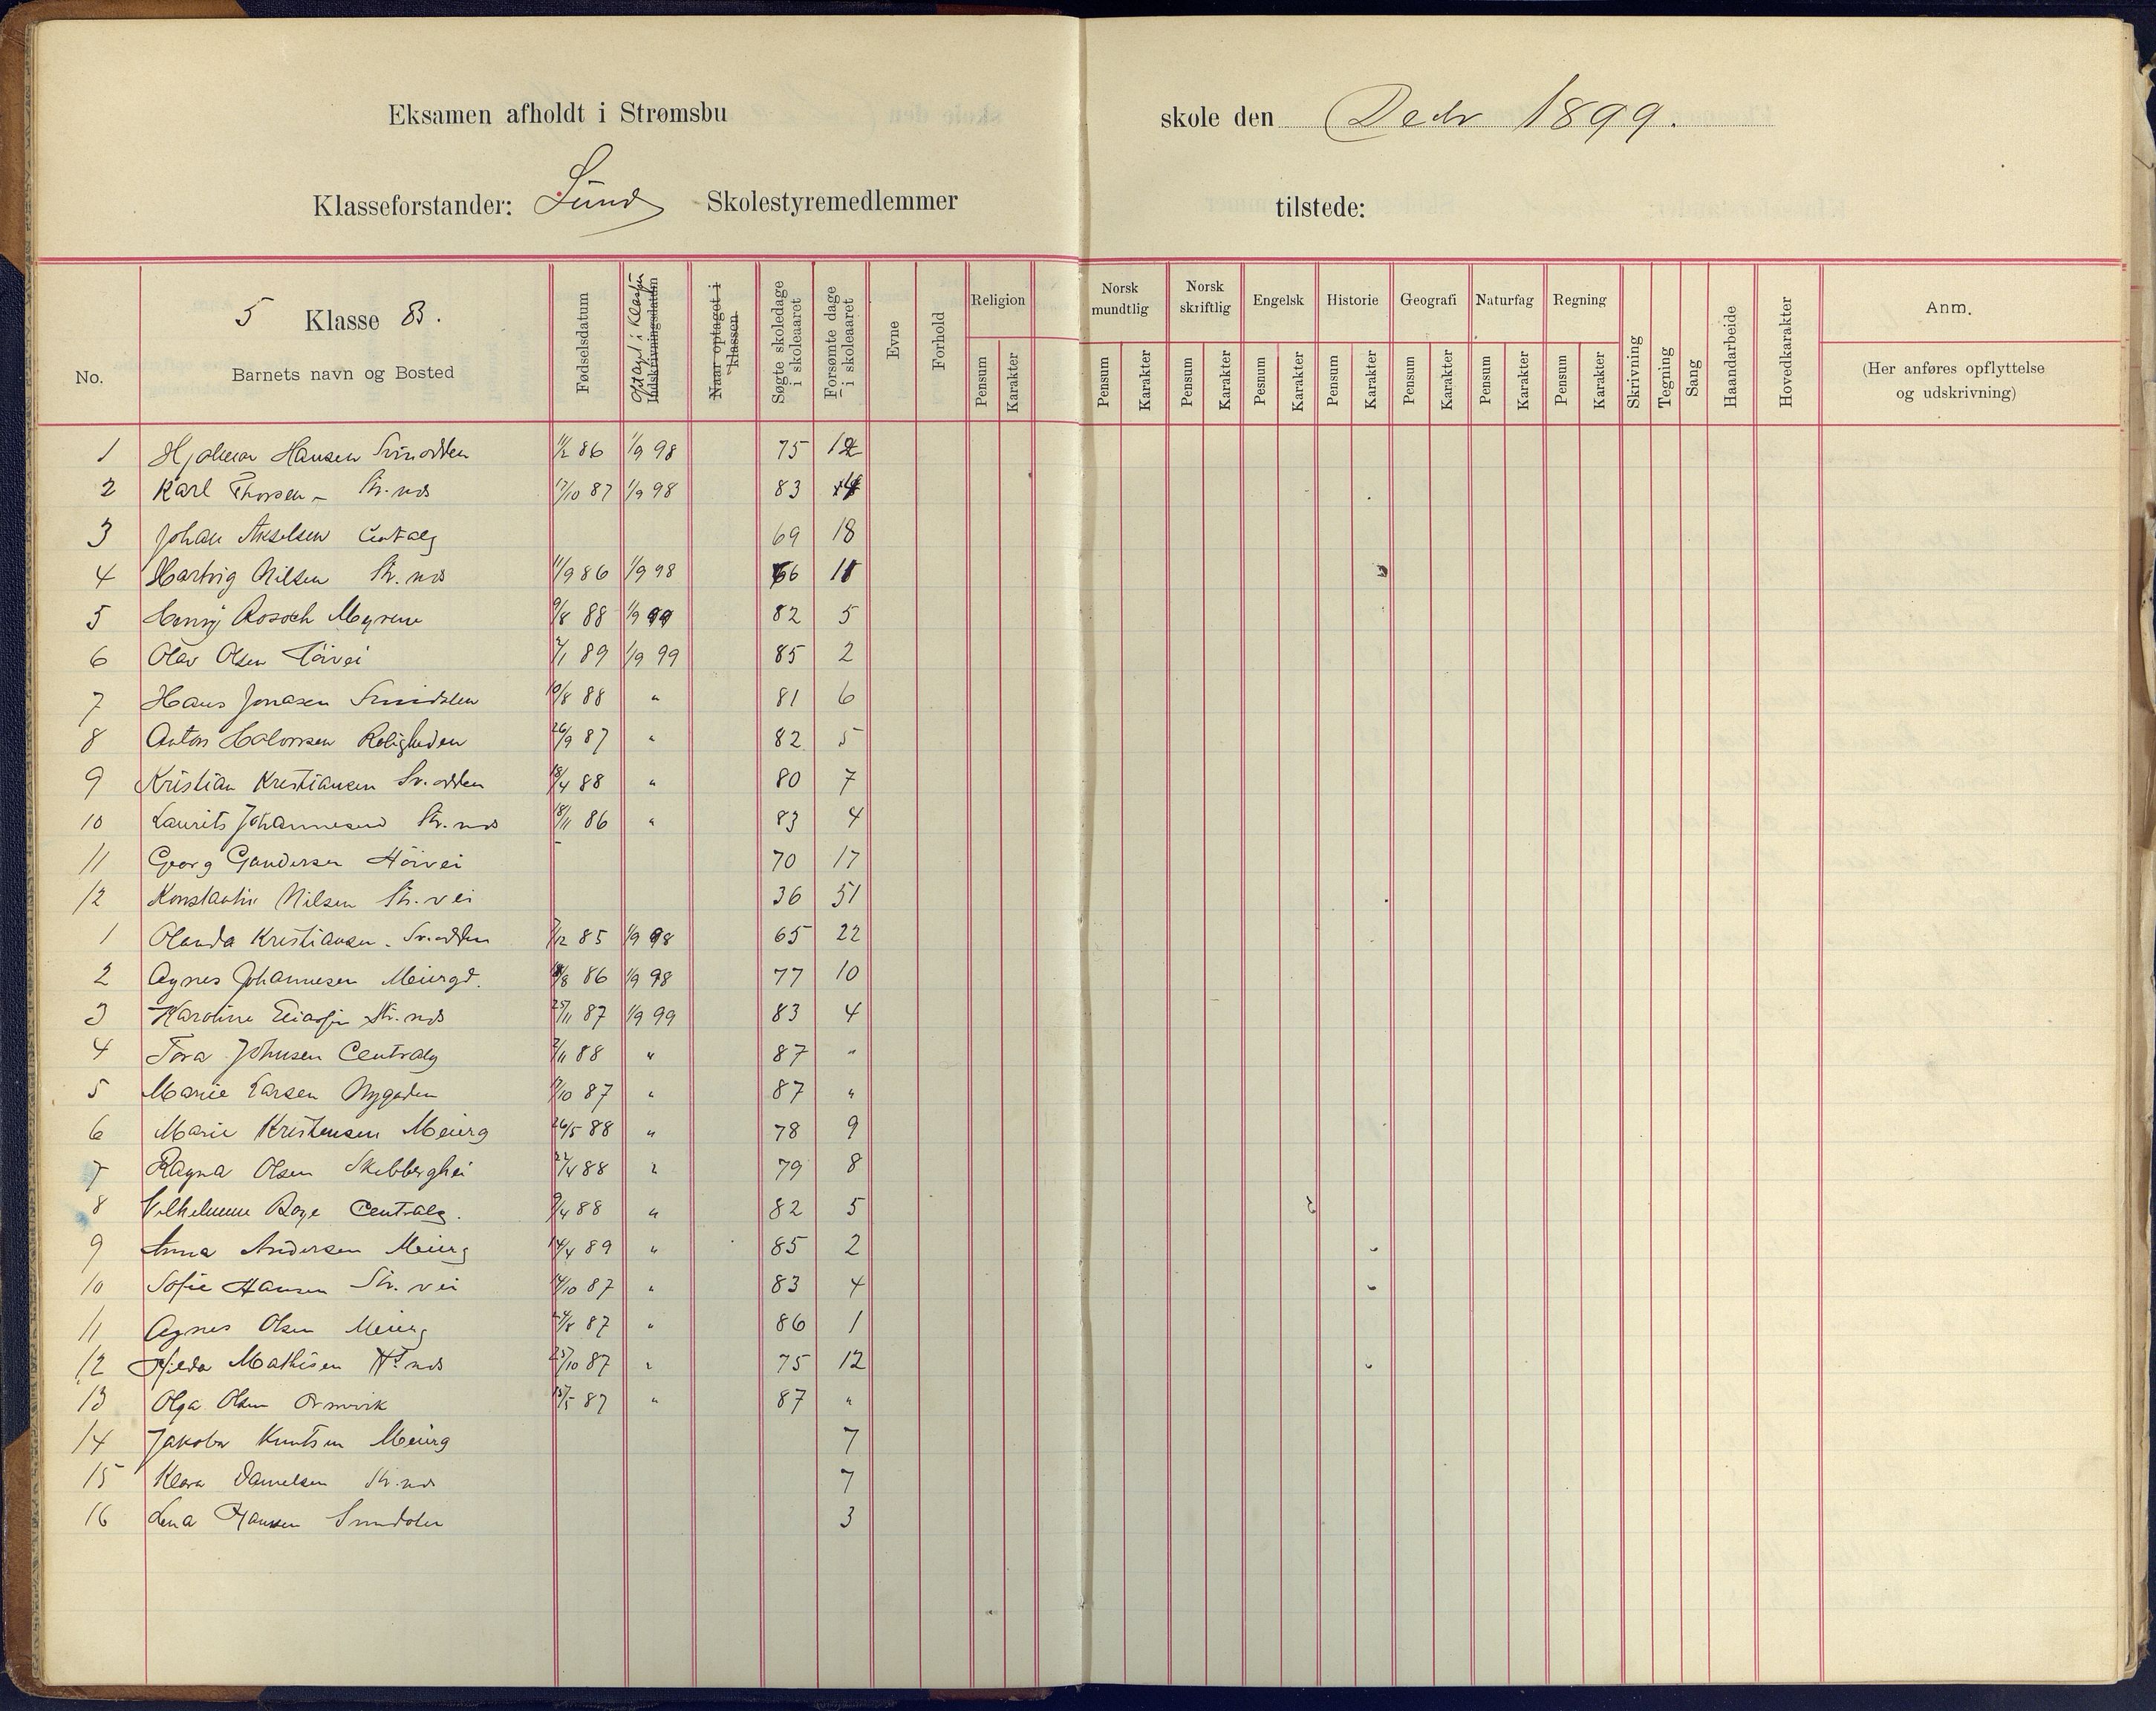 Eksamen afholdt i Strømsbu skole den Decbr 1899.
Klasseforstander: Lund Skolestyremedlemmer tilstede:
No. 5 Klasse B. Barnets navn og Bosted Fødselsdatum Optaget i Klassen Udskrivningsdatum Naar optaget i klassen Søgte skoledage i skoleaaret Forsømte dage i skoleaaret Evne Forhold Religion Pensum Karakter Norsk mundtlig Pensum Karakter Norsk skriftlig Pensum Karakter Engelsk Pesnum Karakter Historie Pensum Karakter Geografi Pensum Karakter Naturfag Pensum Karakter Regning Pensum Karakter Skrivning Tegning Sang Haandarbeide Hovedkarakter Anm. (Her anføres opflyttelse og udskrivning)
1 Hjalmar Hansen 86 1/9 98 75 12
2 Karl Thorsen - Str. nds 17/10 87 1/9 98 83
3 Johan Akselsen 69 18
4 Hartvig Nilsen Str. nds 11/9 86 1/9 98 66 11
5 Henrij Rosoch Myrene 9/8 88 1/9 99 82 5
6 Olav Olsen Höivei 2/1 89 1/9 99 85 2
7 Hans Jonasen 19/8 88 " 81 6
8 Anton Halvorsen Roligheden 26/9 87 " 82 5
9 Kristian Kristiansen Sv. odden 18/4 88 " 80 7
10 Laurits Johannesen Str. nds 18/11 86 " 83 4
11 Georg Gundersen Höivei 70 17
12 Konstantin Nilsen Str. vei 36 51
1 Olanda Kristiansen. Sv. odden 7/12 85 1/9 98 65 22
2 Agnes Johannesen Meiergd. 86 1/9 98 77 10
3 Karoline Str. nds 25/11 87 1/9 99 83 4
4 Tora Johnsen Centralg 2/11 88 " 87 "
5 Marie Larsen Nygaden 9/10 87 " 87 "
6 Marie Kristensen Meierg 26/5 88 " 78 9
7 Ragna Olsen Skibberghei 22/4 88 " 79 8
8 Vilhelmine Boye Centralg. 9/4 88 " 82 5
9 Anna Andersen Meierg 14/4 89 " 85 2
10 Sofie Hansen Str. vei 14/10 87 " 83 4
11 Agnes Olsen Meierg 24/8 87 " 86 1
12 Hilda Mathisen nds 25/10 87 " 75 12
13 Olga Olsen Ormvik 15/5 87 " 87 "
14 Jakoba Knutsen Meierg 7
15 Klara Danielsen Str. nds 7
16 Lena Hansen 3